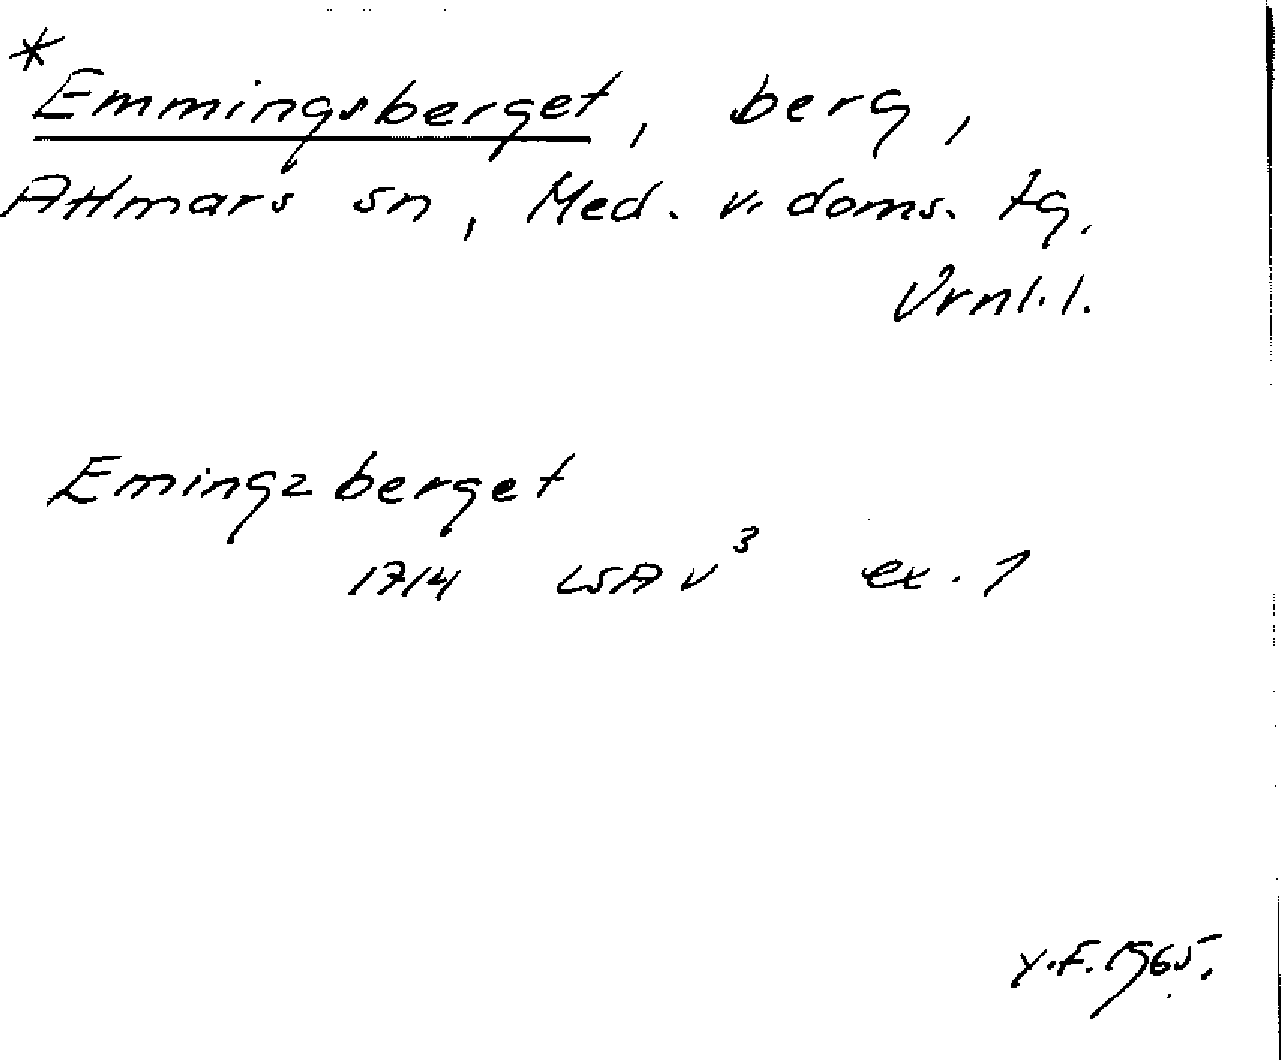 *Emmingsberget, berg,
Attmars sn, Med. v. doms. tg.
Vrnl. l.
Emingzberget
1714 LSA V³ ex. 1
Y.F. 1965.